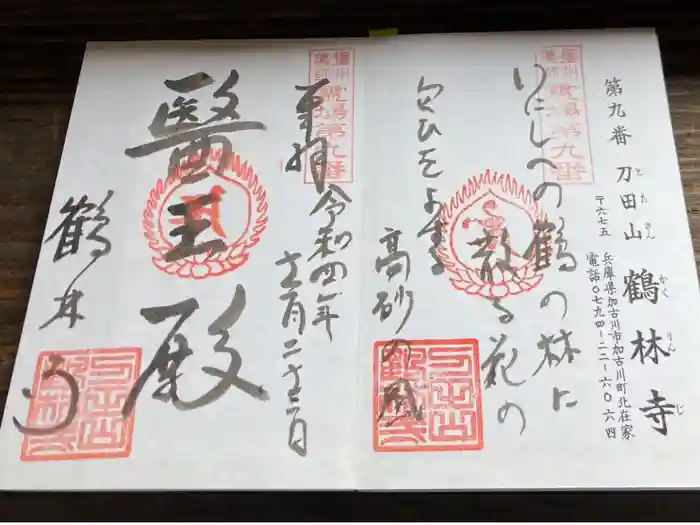 第九番 刀田山 鶴林寺
とたさん かくりんじ
〒六七五
兵庫県加古川市加古川町北在家
電話〇七九四-二二-六〇六四
播州薬師霊場第九番
いにしへの鶴の林に
散る花の
匂ひをよする
高砂の風
播州薬師霊場第九番
奉拝 令和四年
十二月二十二日
醫王殿
鶴林寺